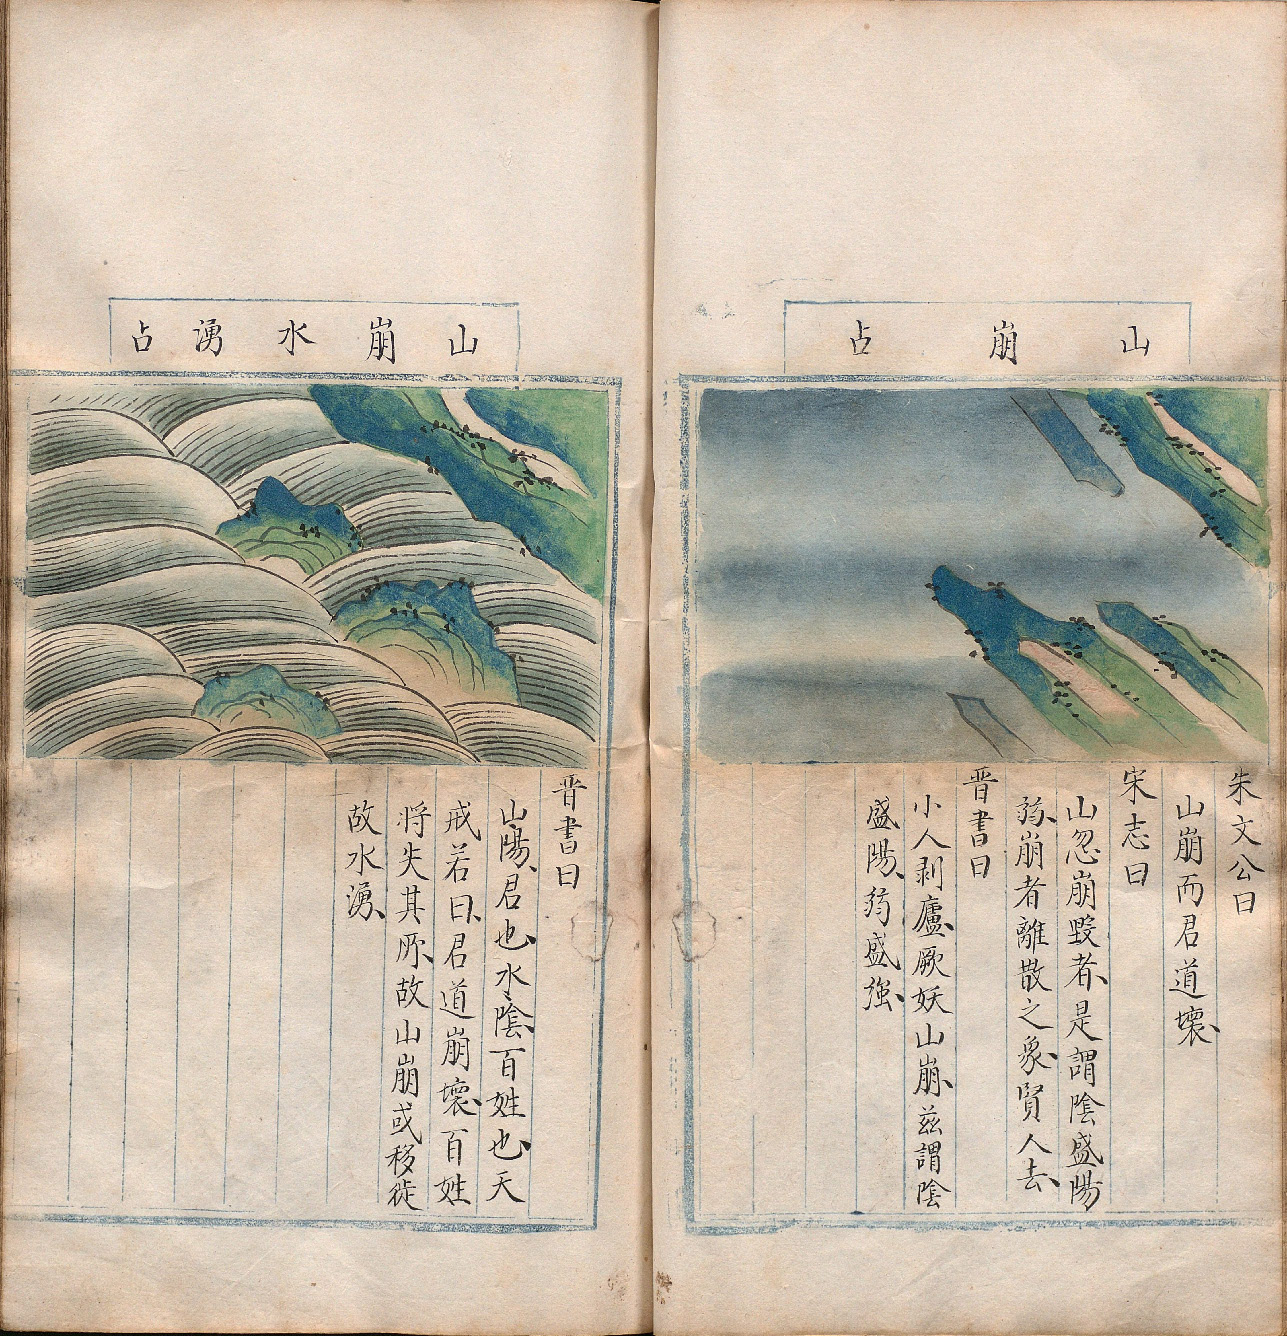 山崩占
朱文公曰
山崩而君道壞
宋志曰
山忽崩毀者是謂陰盛陽
弱崩者離散之象賢人去
晋書曰
小人剥廬厥妖山崩茲謂陰
盛陽弱盛強
山崩水湧占
晋書曰
山陽君也水陰百姓也天
戒若曰君道崩壞百姓
將失其所故山崩或移徙
故水湧